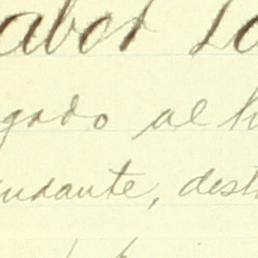 abot La
gado al h
undante, dest